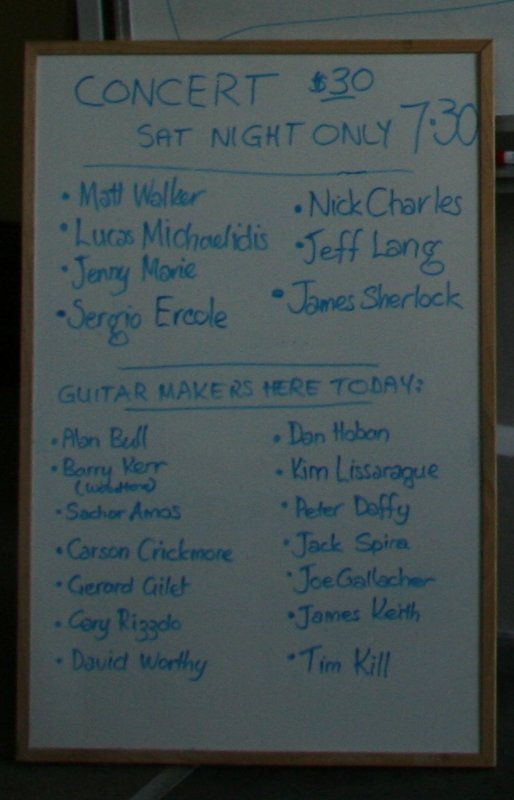 CONCERT $30
SAT NIGHT ONLY 7.30
• Matt Walker
• Lucas Michaelidis
• Jenny Marie
• Sergio Ercole
• Nick Charles
• Jeff Lang
• James Sherlock
GUITAR MAKERS HERE TODAY:
• Alan Bull
• Barry Kerr
• Sachar Amos
• Carson Crickmore
• Gerard Gilet
• Gary Rizzolo
• David Worthy
• Dan Hoban
• Kim Lissarague
• Peter Daffy
• Jack Spira
• Joe Gallacher
• James Keith
• Tim Kill